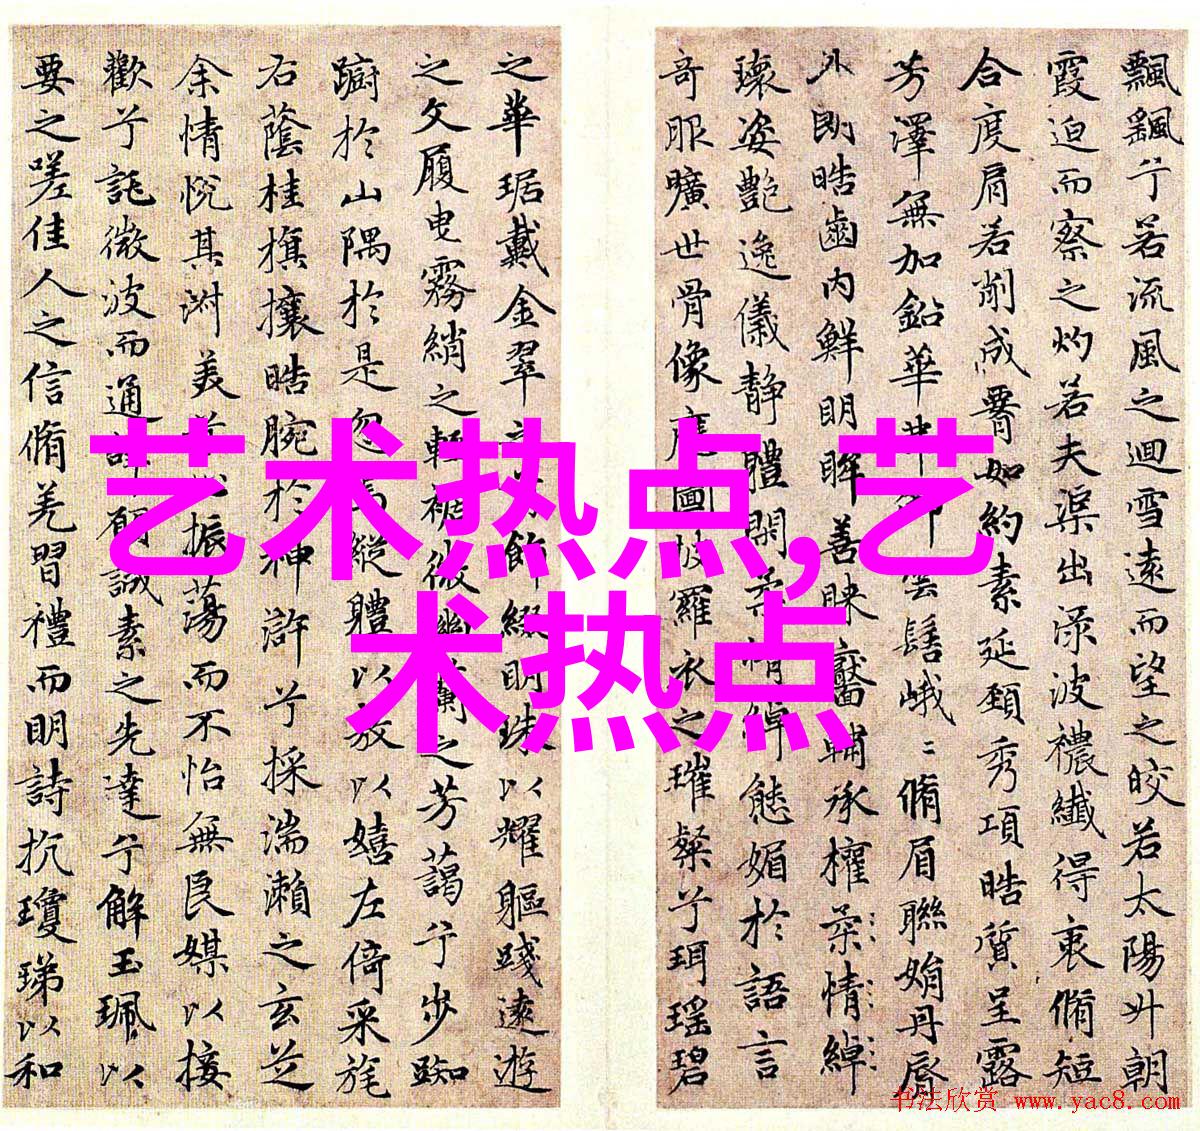 飄飖兮若流風之迴雪遠而望之皎若太陽升朝
霞迫而察之灼若夫渠出淥波禯纖得衷脩短
合度肩若削成署如約素延頸秀項皓質呈露
芳澤無加鉛華弗御雲髻峨〻脩眉聯娟丹脣
外朗皓齒內鮮明眸善睞靨輔承權柔情綽
瓌姿艷逸儀靜體閑柔情綽態媚於語言
奇服曠世骨像應圖披羅衣之璀粲兮珥瑶碧
之華琚戴金翠之首飾綴明珠以耀軀踐遠遊
之文履曳霧綃之輕裾微幽蘭之芳藹兮步踟
躕於山隅於是忽焉縱體以遨以嬉左倚采旄
右蔭桂旗攘皓腕於神滸兮採湍瀨之玄芝
余情悅其淑美兮心振蕩而不怡無良媒以接
歡兮託微波而通辭願誠素之先達兮解玉珮以
要之嗟佳人之信脩羌習禮而明詩抗瓊珶以和
艺术热点,艺
术热点
书法欣赏 www.yac8.com